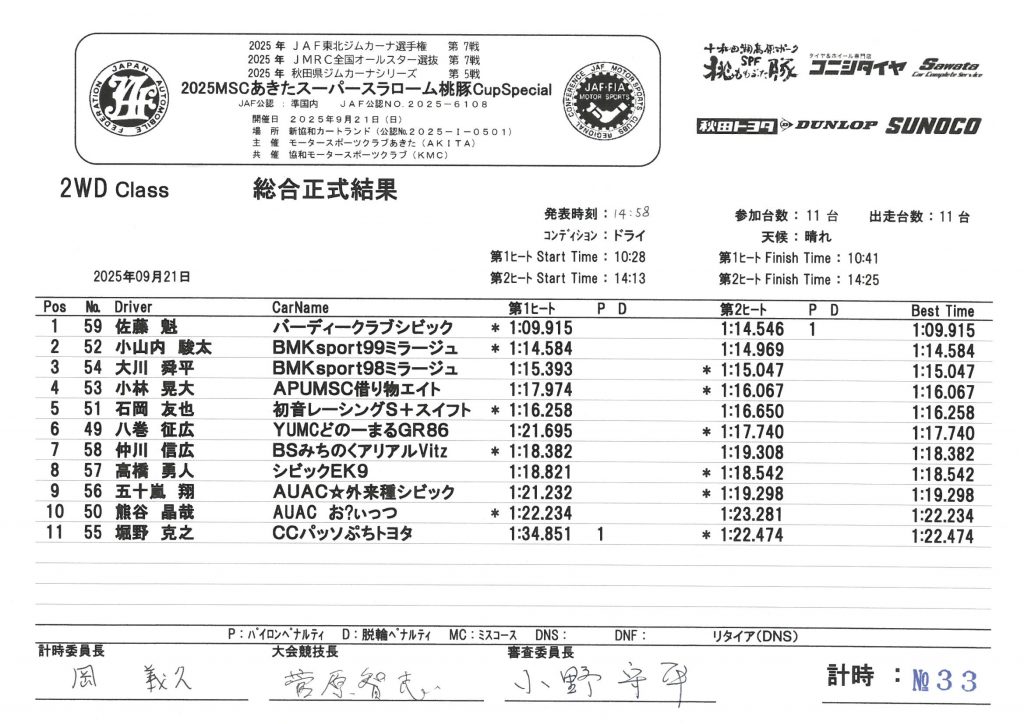 2025 年 JAF東北ジムカーナ選手権 第 7戦
2025 年 JMRC全国オールスター選抜 第 7戦
2025 年 秋田県ジムカーナシリーズ 第 5戦
2025MSCあきたスーパースラローム桃豚CupSpecial
JAF公認 : 準国内 JAF公認NO.2025-6108
開催日 2025年9月21日(日)
場 所 新協和カートランド(公認№2025-I-0501)
主 催 モータースポーツクラブあきた(AKITA)
共 催 協和モータースポーツクラブ(KMC)
JAPAN AUTOMOBILE FEDERATION
JAF
JAF MOTOR SPORTS CLUBS REGIONAL CONFERENCE
JAF·FIA
MOTOR SPORTS
十和田湖高原ポーク
SPF
桃ももぶた豚
タイヤ&ホイール専門店
コニシタイヤ
Sawata
Car Complete Service
秋田トヨタ
DUNLOP
SUNOCO
2WD Class 総合正式結果
発表時刻 : 14:58 参加台数 : 11 台 出走台数 : 11 台
コンディション : ドライ 天候 : 晴れ
第1ヒート Start Time : 10:28 第1ヒート Finish Time : 10:41
2025年09月21日 第2ヒート Start Time : 14:13 第2ヒート Finish Time : 14:25
Pos No. Driver CarName 第1ヒート P D 第2ヒート P D Best Time
1 59 佐藤 魁 バーディークラブシビック * 1:09.915 1:14.546 1 1:09.915
2 52 小山内 駿太 BMKsport99ミラージュ * 1:14.584 1:14.969 1:14.584
3 54 大川 舜平 BMKsport98ミラージュ 1:15.393 * 1:15.047 1:15.047
4 53 小林 晃大 APUMSC借り物エイト 1:17.974 * 1:16.067 1:16.067
5 51 石岡 友也 初音レーシングS+スイフト * 1:16.258 1:16.650 1:16.258
6 49 八巻 征広 YUMCどのーまるGR86 1:21.695 * 1:17.740 1:17.740
7 58 仲川 信広 BSみちのくアリアルVitz * 1:18.382 1:19.308 1:18.382
8 57 高橋 勇人 シビックEK9 1:18.821 * 1:18.542 1:18.542
9 56 五十嵐 翔 AUAC☆外来種シビック 1:21.232 * 1:19.298 1:19.298
10 50 熊谷 晶哉 AUAC お?ぃっつ * 1:22.234 1:23.281 1:22.234
11 55 堀野 克之 CCパッソぷちトヨタ 1:34.851 1 * 1:22.474 1:22.474
P : パイロンペナルティ D : 脱輪ペナルティ MC : ミスコース DNS : DNF : リタイア(DNS)
計時委員長 大会競技長 審査委員長
岡 義久 菅原 智 小野 守平
計時 : № 33